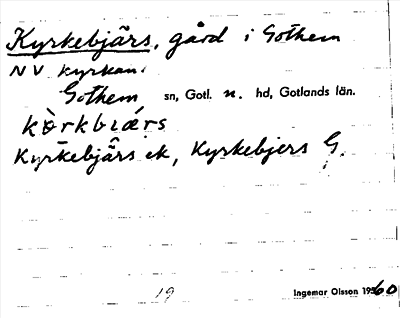 Kyrkebjärs, gård i Gothem
NV kyrkan.
Gothem sn, Gotl. n. hd, Gotlands län.
kò̀rkbıárs
Kyrkebjärs ek, Kyrkebjers G.
19 Ingemar Olsson 1960